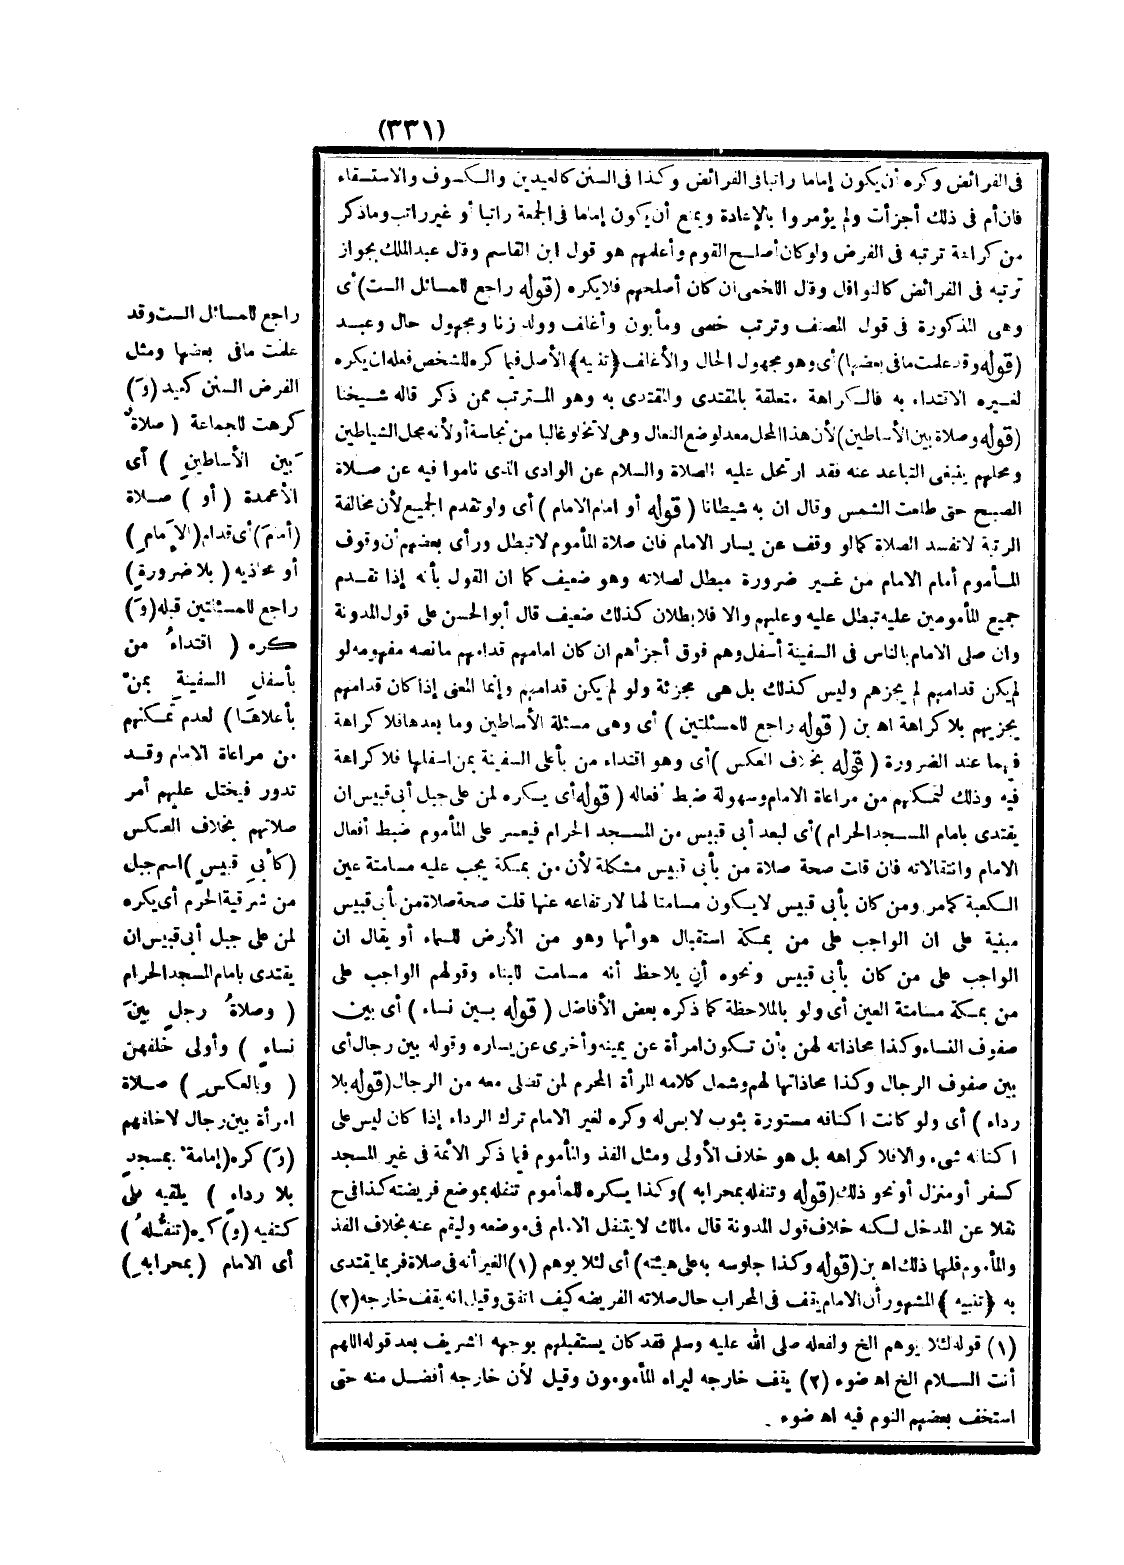 (٣٣١)
فى الفرائض وكره أن يكون إماما راتبا فى الفرائض وكذا فى السنن كالعيدين والكسوف والاستسقاء
فان أم فى ذلك أجزأت ولم يؤمروا بالإعادة ويمنع أن يكون إماما فى الجمعة راتبا أو غير راتب وماذكر
من كراهة ترتبه فى الفرض ولو كان أصلح القوم وأعلمهم هو قول ابن القاسم وقال عبدالملك بجواز
ترتبه فى الفرائض كالنوافل وقال اللخمى ان كان أصلحهم فلا يكره (قوله راجع للمسائل الست) أى
وهى المذكورة فى قول المصنف وترتب خصى ومأبون وأغلف وولد زنا ومجهول حال وعبد
(قوله وقد علمت مافى بعضها) أى وهو مجهول الحال والأغلف {تنبيه} الأصل فيما كره للشخص فعله ان يكره
لغيره الاقتداء به فالكراهة متعلقة بالمقتدى والمقتدى به وهو المترتب ممن ذكر قاله شيخنا
(قوله وصلاة بين الأساطين) لأن هذا المحل معد لوضع النعال وهى لا تخلو غالبا من نجاسة أو لأنه محل الشياطين
ومحلهم ينبغى التباعد عنه فقد ارتحل عليه الصلاة والسلام عن الوادى الذى ناموا فيه عن صلاة
الصبح حتى طلعت الشمس وقال ان به شيطانا (قوله أو امام الامام) أى ولو تقدم الجميع لأن مخالفة
الرتبة لا تفسد الصلاة كمالو وقف عن يسار الامام فان صلاة المأموم لا تبطل ورأى بعضهم أن وقوف
المأموم أمام الامام من غير ضرورة مبطل لصلاته وهو ضعيف كما ان القول بأنه إذا تقدم
جميع المأمومين عليه تبطل عليه وعليهم والا فلا بطلان كذلك ضعيف قال أبو الحسن على قول المدونة
وان صلى الامام بالناس فى السفينة أسفل وهم فوق أجزأهم ان كان امامهم قدامهم مانصه مفهومه لو
لم يكن قدامهم لم يجزهم وليس كذلك بل هى مجزئة ولو لم يكن قدامهم وإنما المعنى إذا كان قدامهم
يجزيهم بلا كراهة اه بن (قوله راجع للمسئلتين) أى وهى مسئلة الأساطين وما بعدها فلا كراهة
فيهما عند الضرورة (قوله بخلاف العكس) أى وهو اقتداء من بأعلى السفينة بمن اسفلها فلا كراهة
فيه وذلك لتمكنهم من مراعاة الامام وسهولة ضبط أفعاله (قوله أى يكره لمن على جبل أبى قبيس ان
يقتدى بامام المسجد الحرام) أى لبعد أبى قبيس من المسجد الحرام فيعسر على المأموم ضبط أفعال
الامام وانتقالاته فان قلت صحة صلاة من بأبى قبيس مشكلة لأن من بمكة يجب عليه مسامتة عين
الكعبة كمامر ومن كان بأبى قبيس لا يكون مسامتا لها لارتفاعه عنها قلت صحة صلاة من أبى قبيس
مبنية على ان الواجب على من بمكة استقبال هوائها وهو من الأرض للسماء أو يقال ان
الواجب على من كان بأبى قبيس ونحوه أن يلاحظ أنه مسامت للبناء وقولهم الواجب على
من بمكة مسامتة العين أى ولو بالملاحظة كما ذكره بعض الأفاضل (قوله بين نساء) أى بين
صفوف النساء وكذا محاذاته لهن بأن تكون امرأة عن يمينه وأخرى عن يساره وقوله بين رجال أى
بين صفوف الرجال وكذا محاذاتها لهم وشمل كلامه المرأة المحرم لمن تصلى معه من الرجال (قوله بلا
رداء) أى ولو كانت اكتافه مستورة بثوب لابس له وكره لغير الامام ترك الرداء إذا كان ليس على
اكتافه شىء والا فلا كراهه بل هو خلاف الأولى ومثل الفذ والمأموم فيما ذكر الأئمة فى غير المسجد
كسفر أو منزل أو نحو ذلك (قوله وتنفله بمحرابه) وكذا يكره للمأموم تنفله بموضع فريضته كذا فى ح
نقلا عن المدخل لكنه خلاف قول المدونة قال مالك لا يتنفل الامام فى موضعه وليقم عنه بخلاف الفذ
والمأموم فلهما ذلك اه بن (قوله وكذا جلوسه به على هيئته) أى لئلا يوهم (١) الغير أنه فى صلاة فربما يقتدى
به {تنبيه} المشهور أن الامام يقف فى المحراب حال صلاته الفريضة كيف اتفق وقيل انه يقف خارجه (٢)
(١) قوله لئلا يوهم الخ ولفعله صلى الله عليه وسلم فقد كان يستقبلهم بوجهه الشريف بعد قوله اللهم
أنت السلام الخ اه ضوء (٢) يقف خارجه ليراه المأمومون وقيل لأن خارجه أفضل منه حتى
استخف بعضهم النوم فيه اه ضوء .
راجع للمسائل الست وقد
علمت مافى بعضها ومثل
الفرض السنن كعيد (وَ)
كرهت للجماعة (صلاةٌ
بَين الأساطينِ) أى
الأعمدة (أو) صلاة
(أمامَ) أى قدام (الإِمامِ)
أو محاذيه (بلا ضرورةٍ)
راجع للمسئلتين قبله (وَ)
كره (اقتداءُ من
بأسفلِ السفينةِ بمن
بأعلاها) لعدم تمكنهم
من مراعاة الامام وقد
تدور فيختل عليهم أمر
صلاتهم بخلاف العكس
(كأبي قبيسٍ) اسم جبل
من شرقية الحرم أى يكره
لمن على جبل أبى قبيس ان
يقتدى بامام المسجد الحرام
(وصلاةُ رجلٍ بينَ
نساءٍ) وأولى خلفهن
(وبالعكسِ) صلاة
امرأة بين رجال لا خلفهم
(وَ) كره (إمامةٌ بمسجدٍ
بلا رداءٍ) يلقيه على
كتفيه (وَ) كره (تنفُّلهُ)
أى الامام (بمحرابهِ)